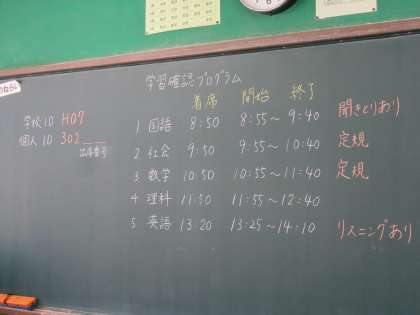 学習確認プログラム
着席 開始 終了
学校ID H07
個人ID 302__
出席番号
1 国語 8:50 8:55～9:40 聞きとりあり
2 社会 9:50 9:55～10:40 定規
3 数学 10:50 10:55～11:40 定規
4 理科 11:50 11:55～12:40
5 英語 13:20 13:25～14:10 リスニングあり